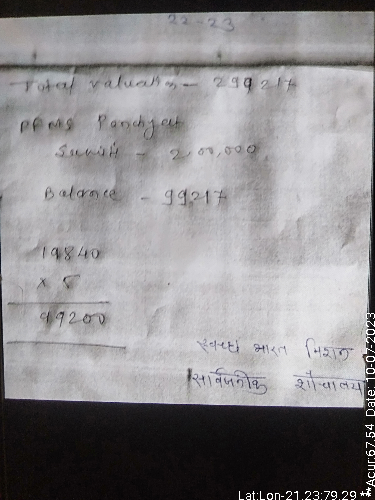 22-23
Total valuation - 299217
PFMS Panchyat
- 2,00,000
Balance - 99217
19840
x 5
99200
स्वच्छ भारत मिशन
सार्वजनीक शौचालय
Lat:Lon-21.23:79.29 ** Acur:67.54 Date: 10-07-2023